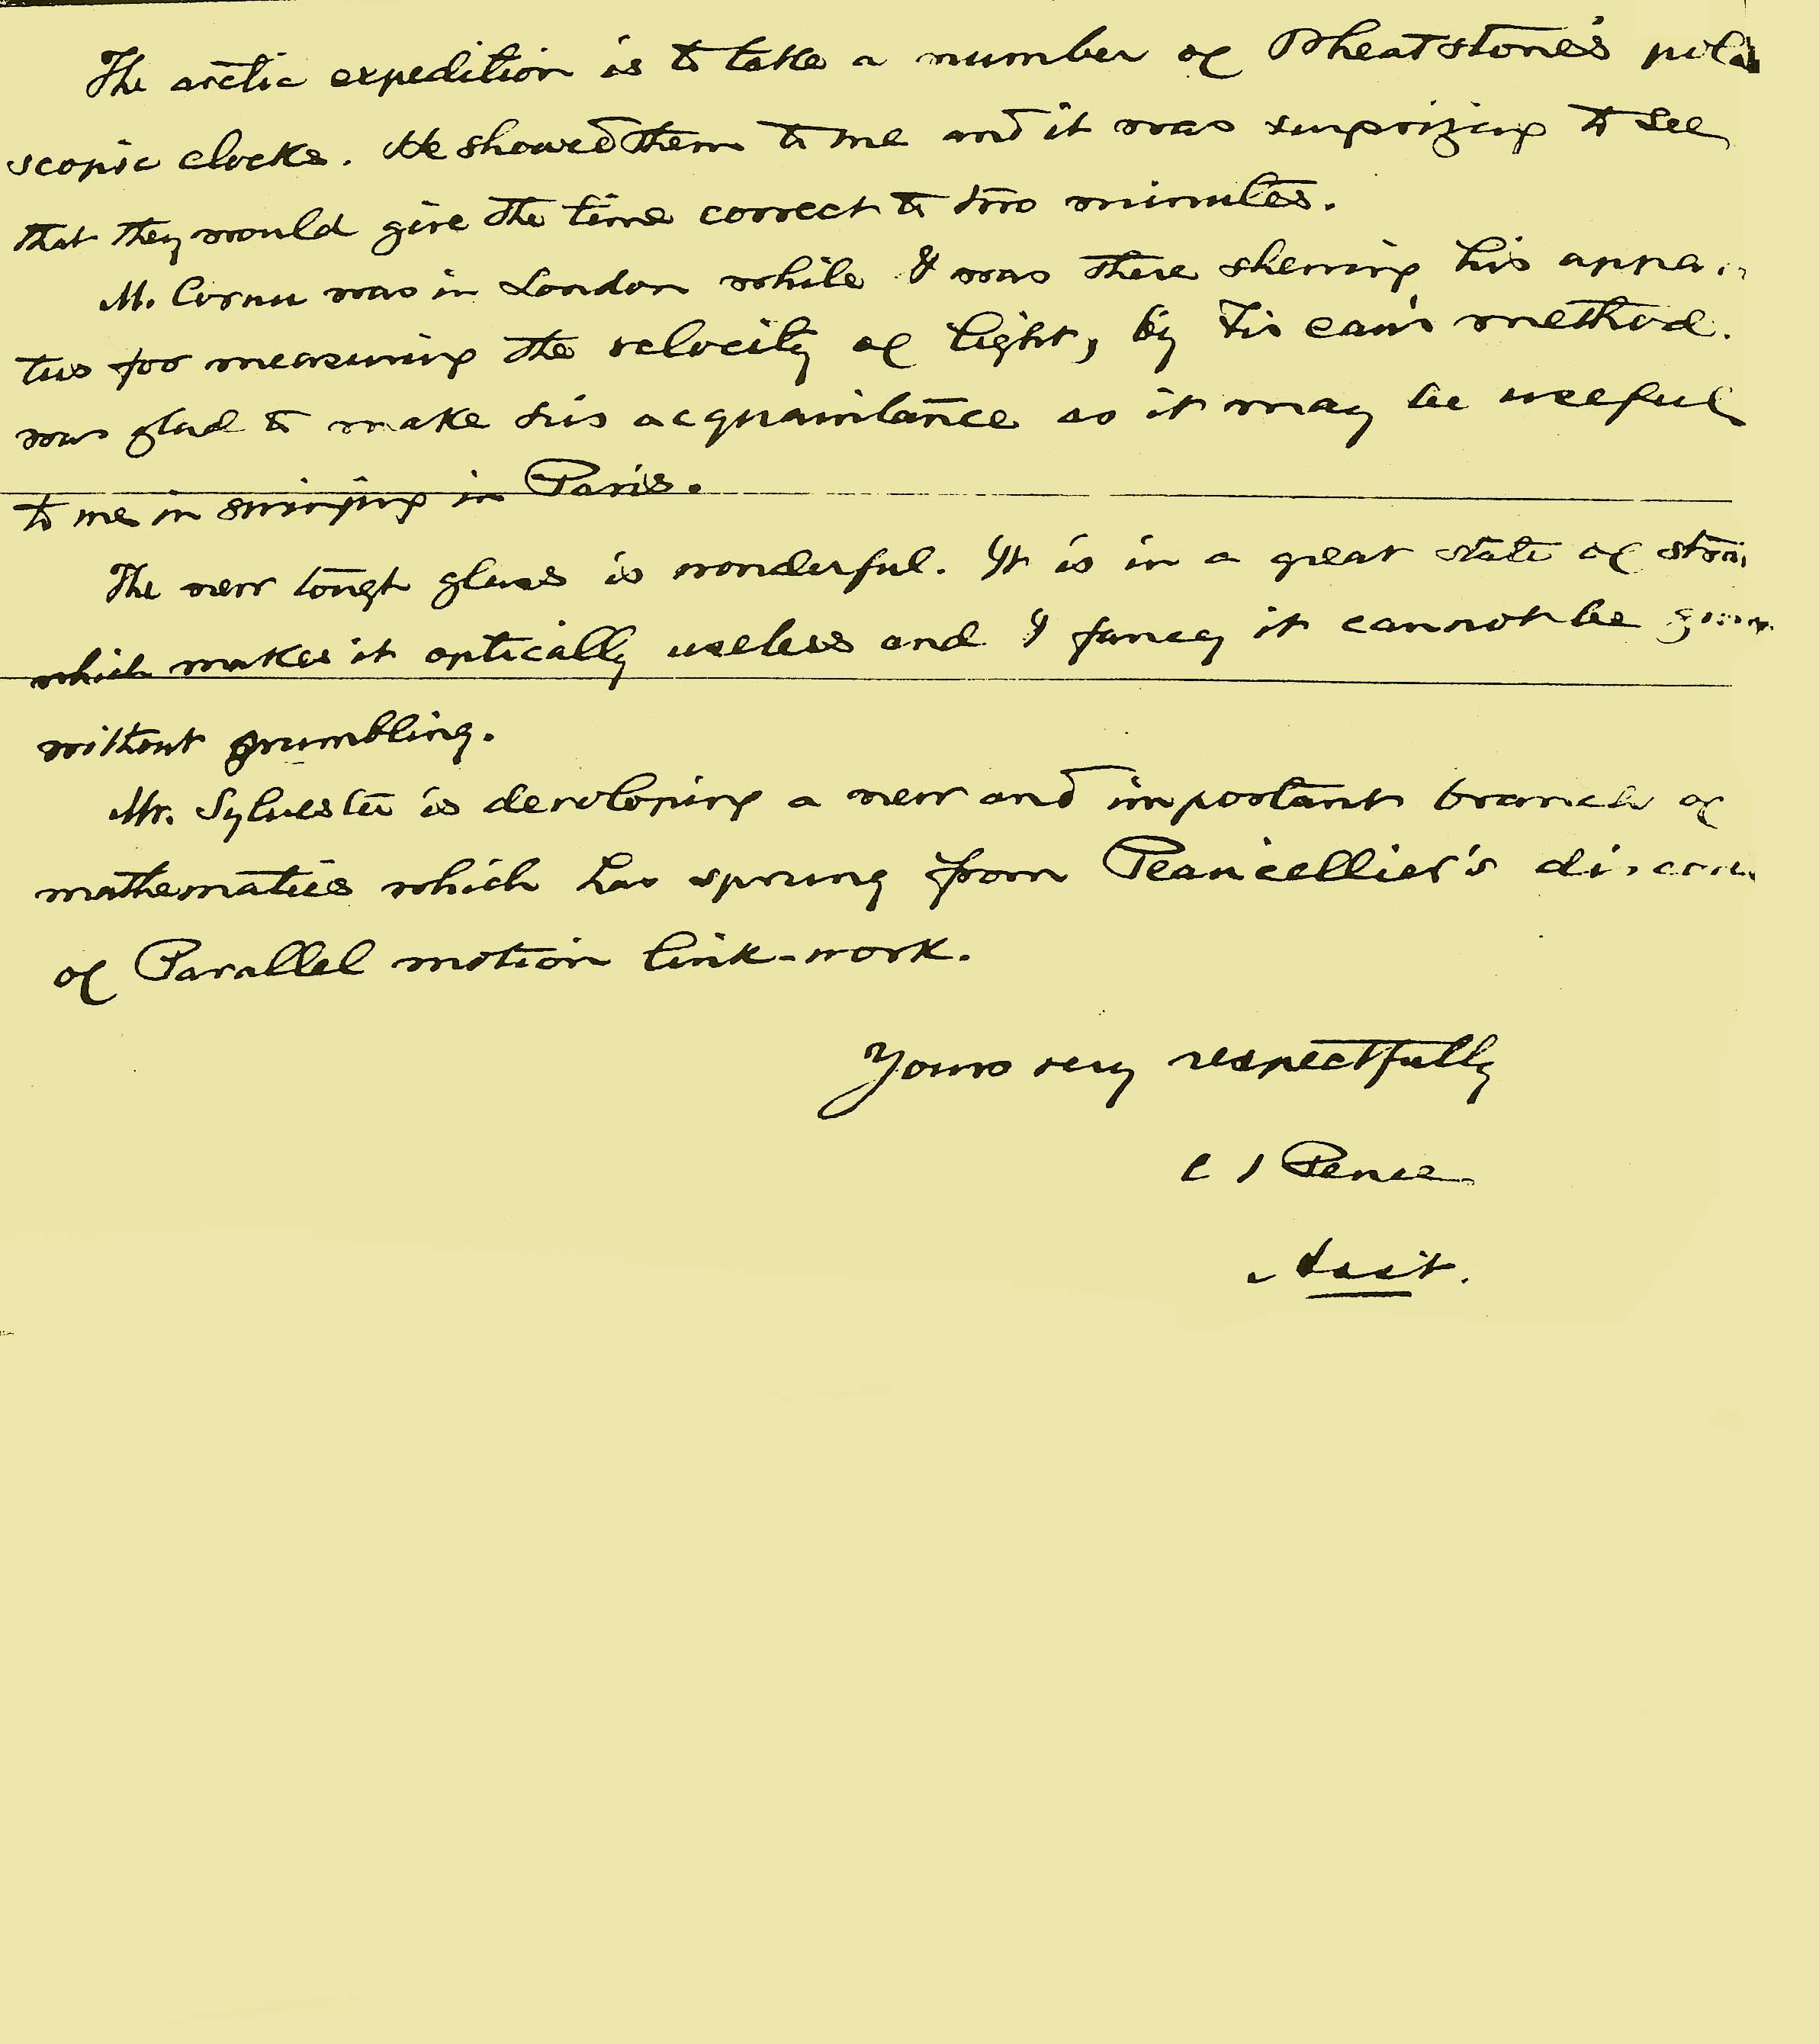 The arctic expedition is to take a number of Wheatstone's pola
scopic clocks. He showed them to me and it was surprizing to see
that they would give the time correct to two minutes.
M. Cornu was in London while I was there shewing his appa
tus for measuring the velocity of light, by Fizeau's method.
was glad to make his acquaintance as it may be useful
to me in swinging in Paris.
The new tough glass is wonderful. It is in a great state of strai
which makes it optically useless and I fancy it cannot be
without grumbling.
Mr. Sylvester is developing a new and important branch of
mathematics which has sprung from Peaucellier's discov
of Parallel motion link-work.
Yours very respectfully
C S Peirce
Assit.